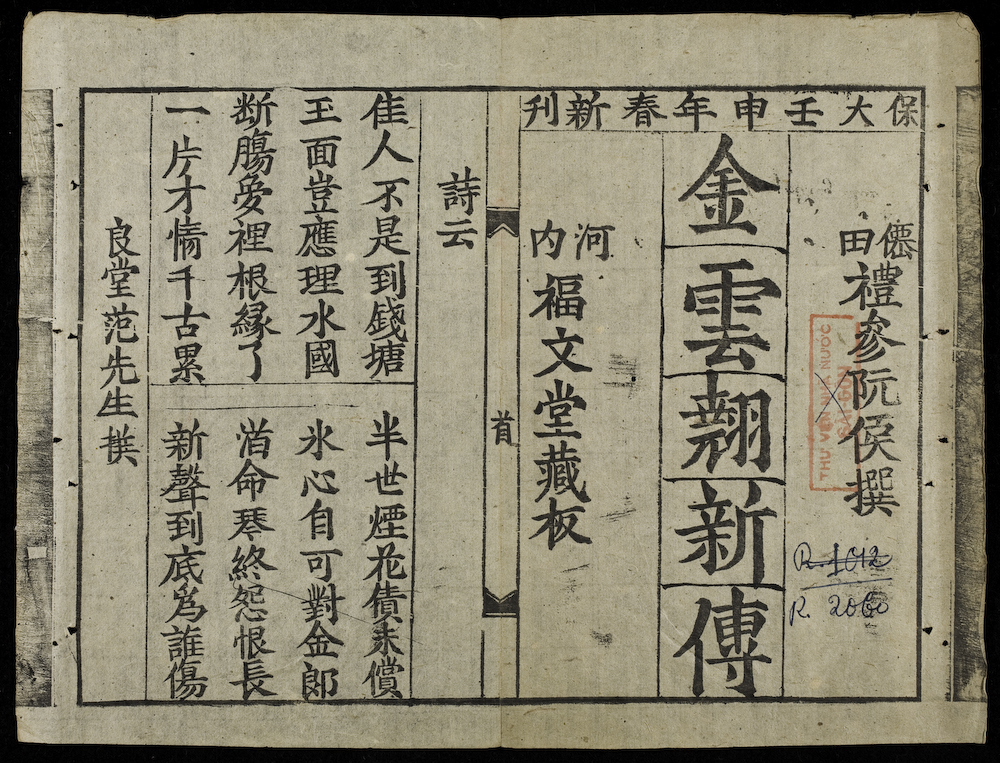 保大壬申年春新刊
僊田禮參阮侯撰
THƯ VIỆN NHÀ NƯỚC
R. 1012
R. 2060
金雲翹新傳
河内福文堂藏板
首
詩云
佳人不是到錢塘 半世煙花債未償
玉面豈應埋水國 氷心自可對金郎
断膓夢裡根縁了 薄命琴終怨恨長
一片才情千古累 新聲到底爲誰傷
良堂范先生撰